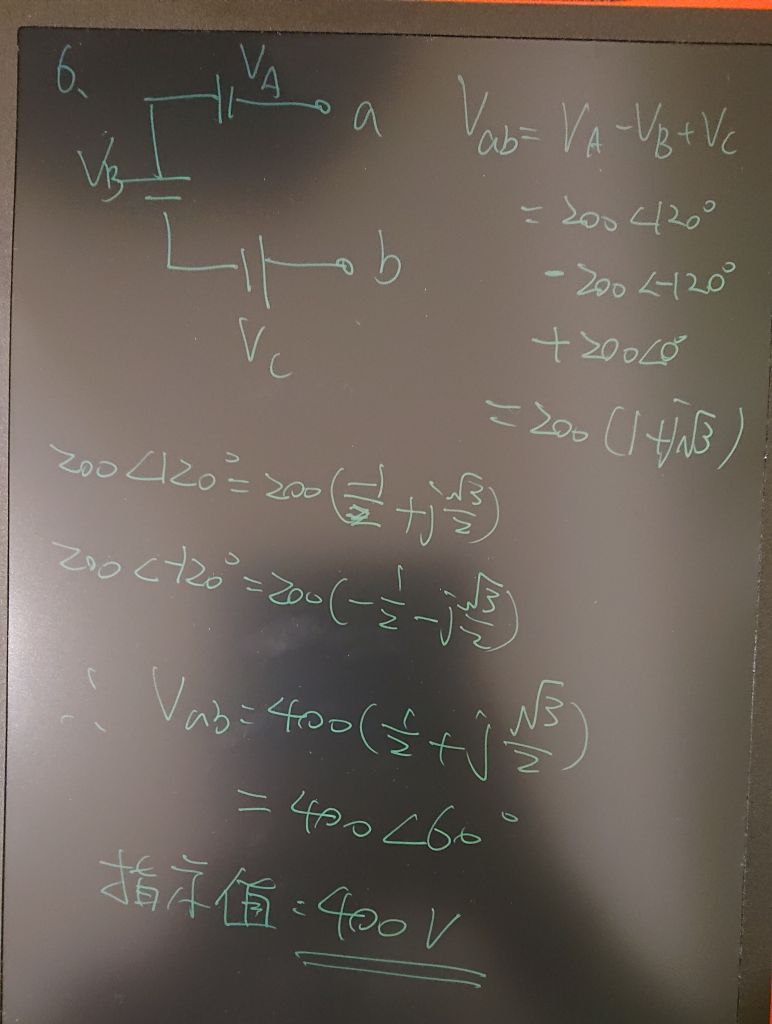 6、
V_A
a
V_B
b
V_C
V_ab = V_A - V_B + V_C
= 200∠120°
- 200∠-120°
+ 200∠0°
= 200 (1+j√3)
200∠120° = 200 (-1/2 + j √3/2)
200∠-120° = 200 (-1/2 - j √3/2)
∴ V_ab = 400 (1/2 + j √3/2)
= 400∠60°
指示値 = 400 V